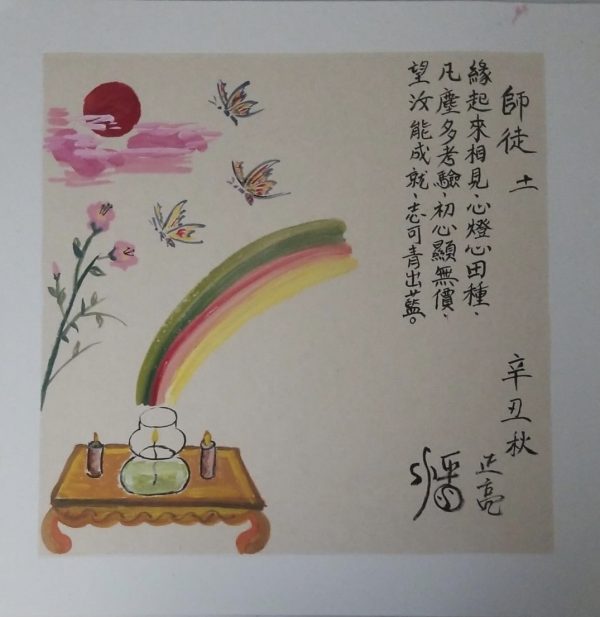 師徒 十一
緣起來相見、心燈心田種、
凡塵多考驗、初心顯無價、
望汝能成就、志可青出藍。
辛丑秋
正亮